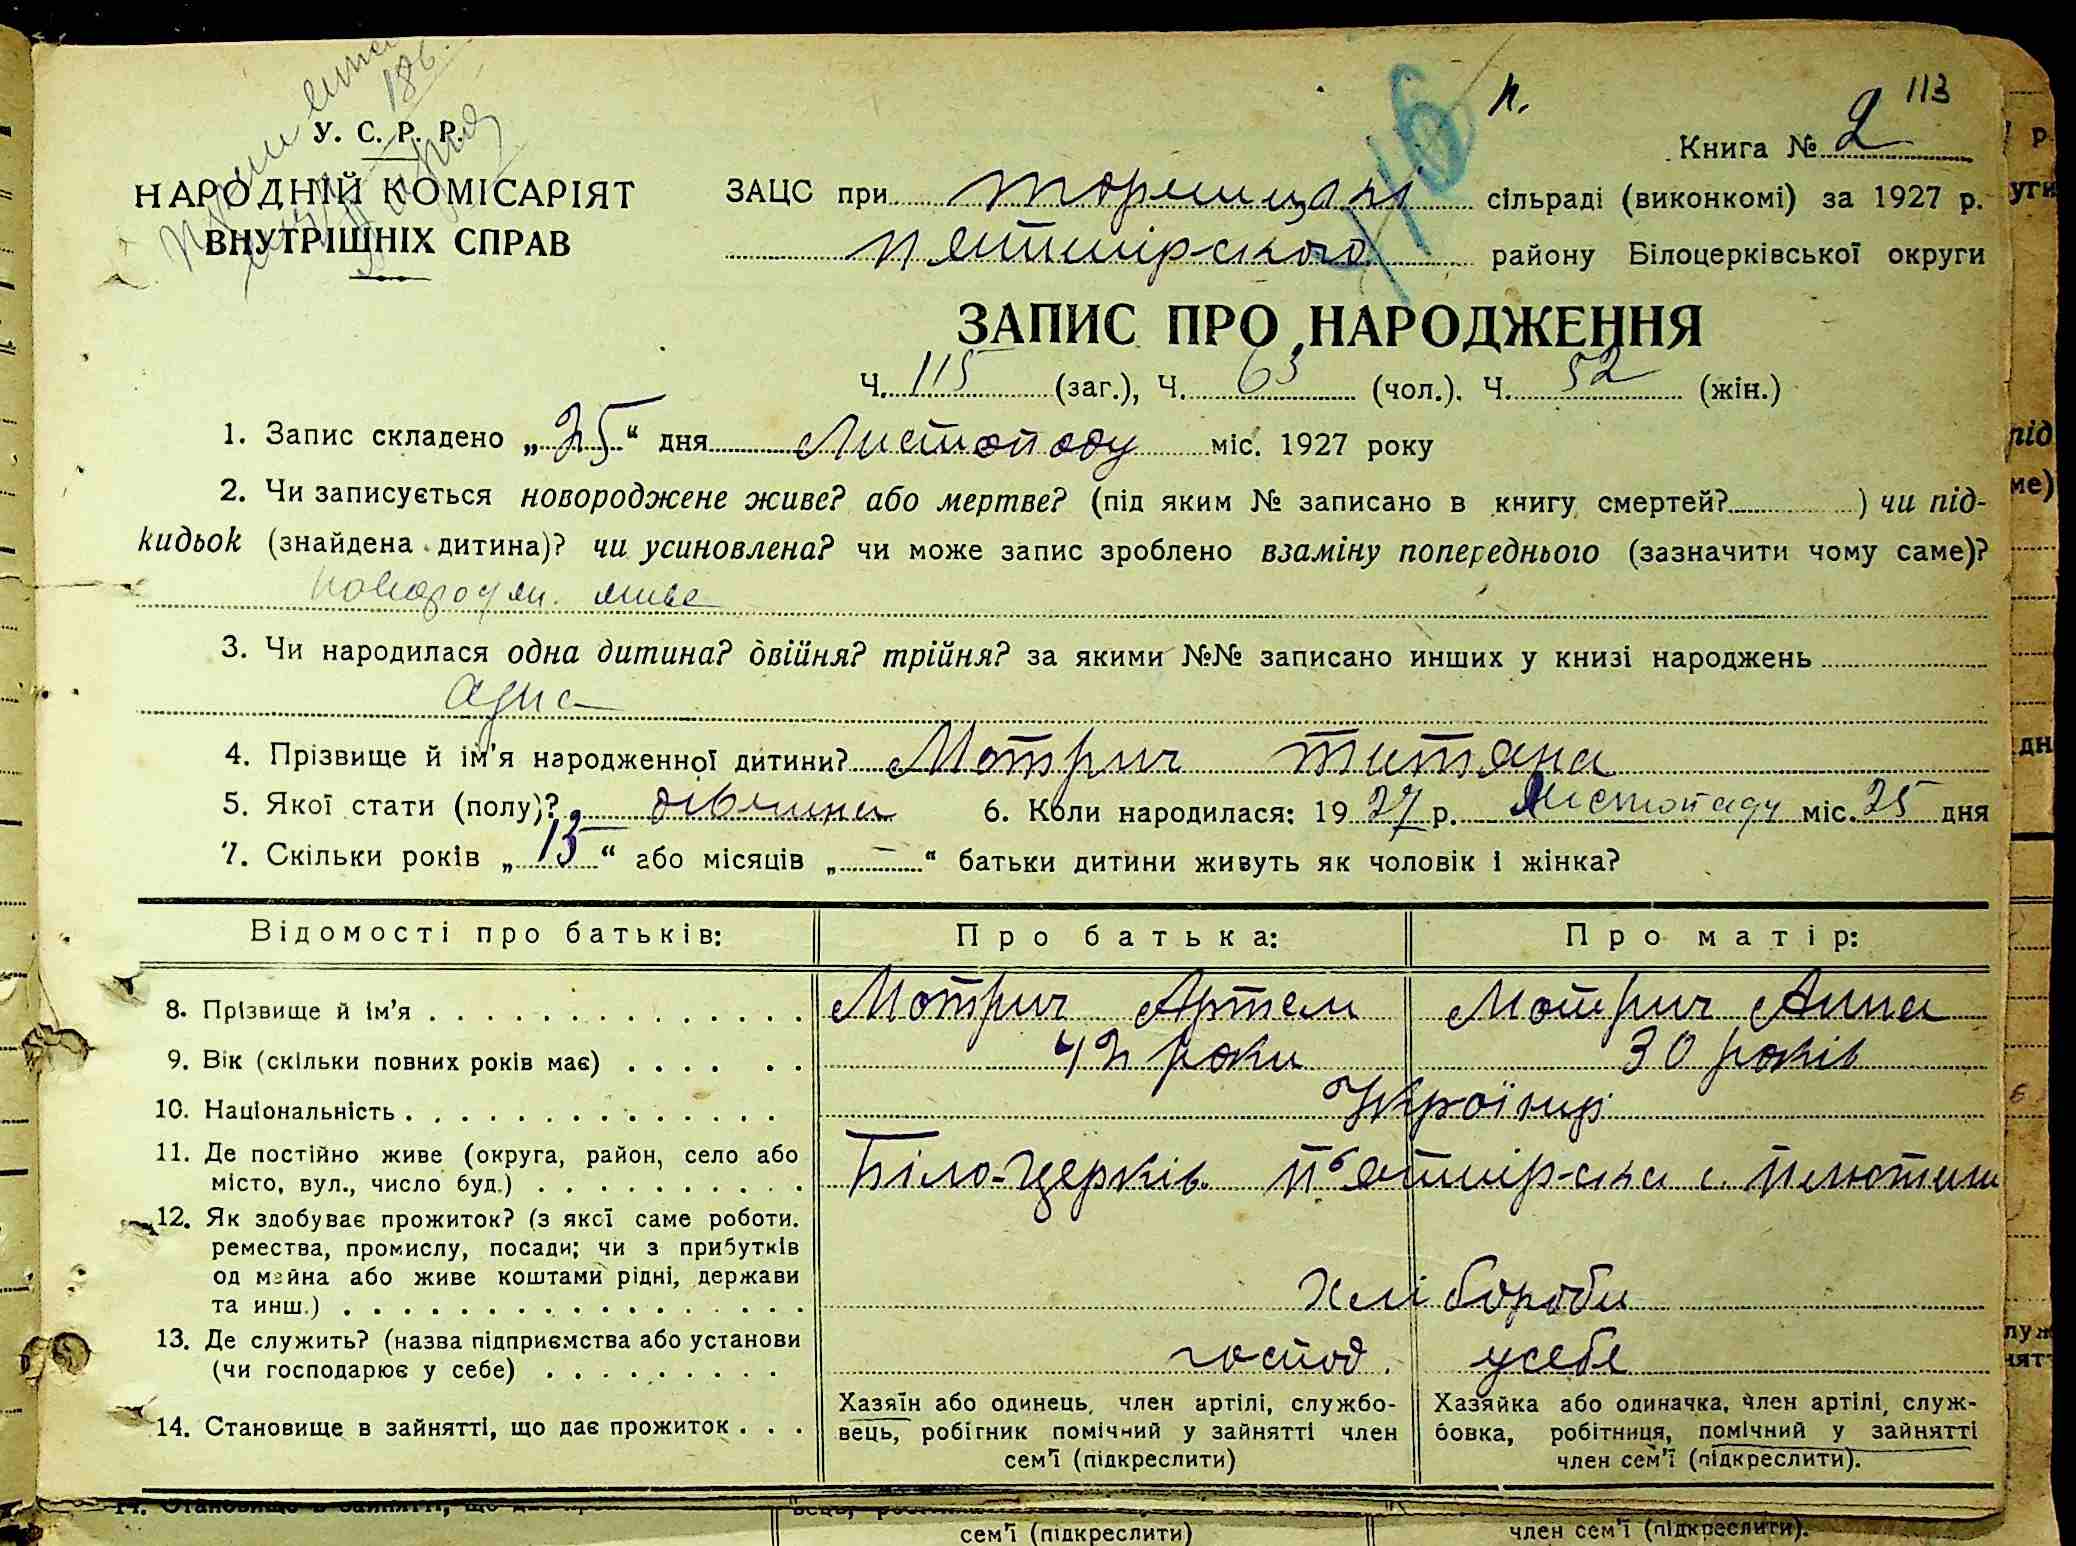 113
н.
116
У. С. Р. Р.
Книга № 2
НАРОДНІЙ КОМІСАРІЯТ
ВНУТРІШНІХ СПРАВ
ЗАЦС при Торчицькі сільраді (виконкомі) за 1927 р.
Пятигірського району Білоцерківської округи
ЗАПИС ПРО НАРОДЖЕННЯ
Ч. 115 (заг.), Ч. 63 (чол.). Ч. 52 (жін.)
1. Запис складено „25“ дня Листопаду міс. 1927 року
2. Чи записується новороджене живе? або мертве? (під яким № записано в книгу смертей? ) чи під-
кидьок (знайдена дитина)? чи усиновлена? чи може запис зроблено взаміну попереднього (зазначити чому саме)?
новородж. живе
3. Чи народилася одна дитина? двійня? трійня? за якими №№ записано инших у книзі народжень
одна
4. Прізвище й ім'я народженної дитини? Мотрич Титяна
5. Якої стати (полу)? дівчина 6. Коли народилася: 1927 р. Листопаду міс. 25 дня
7. Скільки років „13“ або місяців „—“ батьки дитини живуть як чоловік і жінка?
Відомості про батьків: Про батька: Про матір:
8. Прізвище й ім'я Мотрич Артем Мотрич Анна
9. Вік (скільки повних років має) 42 роки 30 років
10. Національність Україньці
11. Де постійно живе (округа, район, село або
місто, вул., число буд.) Біло-Церків. П'ятигір-ська с.
12. Як здобуває прожиток? (з якої саме роботи.
ремества, промислу, посади; чи з прибутків
од майна або живе коштами рідні, держави
та инш.) Хлібороби
13. Де служить? (назва підприємства або установи
(чи господарює у себе) господ. усебе
14. Становище в зайнятті, що дає прожиток
Хазяїн або одинець, член артілі, службо-
вець, робігник помічний у зайнятті член
сем'ї (підкреслити)
Хазяйка або одиначка, член артілі, служ-
бовка, робітниця, помічний у зайнятті
член сем'ї (підкреслити).
сем'ї (підкреслити)
член сем'ї (підкреслити).